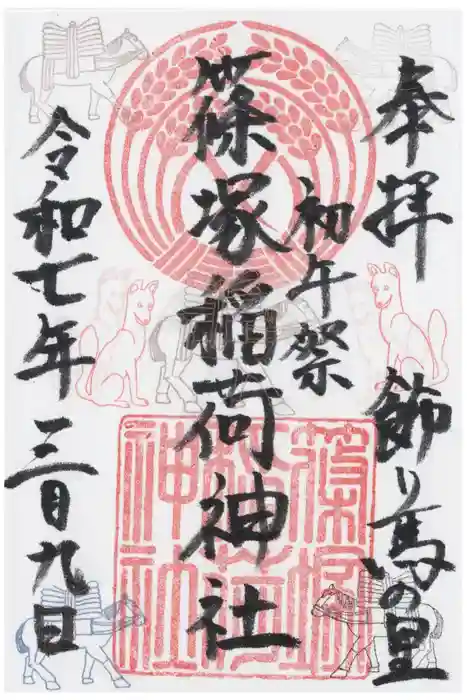 奉拝 飾り馬の里
初午祭
篠塚稲荷神社
令和七年三月九日
篠塚
稲荷
神社